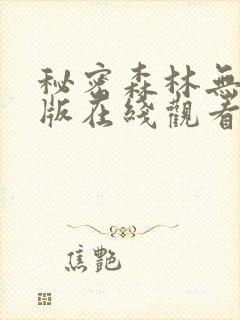 秘密森林無
版在綫觀看
焦艷